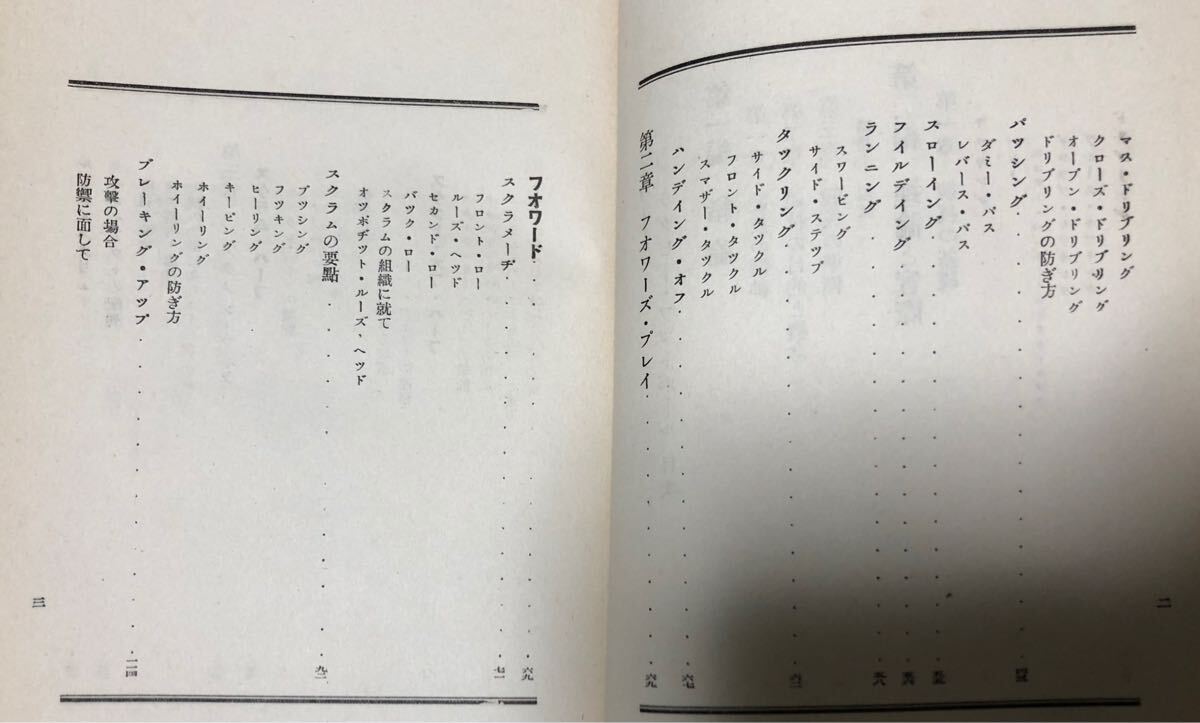 マス・ドリブリング
クローズ・ドリブリング
オープン・ドリブリング
ドリブリングの防ぎ方
パツシング
ダミー・パス
レバース・パス
スローイング
フイルデイング
ランニング
スワービング
サイド・ステツプ
タツクリング
サイド・タツクル
フロント・タツクル
スマザー・タツクル
ハンデイング・オフ 六七
第二章 フオワーズ・プレイ 六九
二
フオワード 六九
スクラメーヂ 七一
フロント・ロー
ルーズ・ヘツド
セカンド・ロー
バツク・ロー
スクラムの組織に就て
オツポヂツト・ルーズ、ヘツド
スクラムの要點
プツシング
フツキング
ヒーリング
キーピング
ホイーリング
ホイーリングの防ぎ方
ブレーキング・アツプ 一一四
攻撃の場合
防禦に面して
三